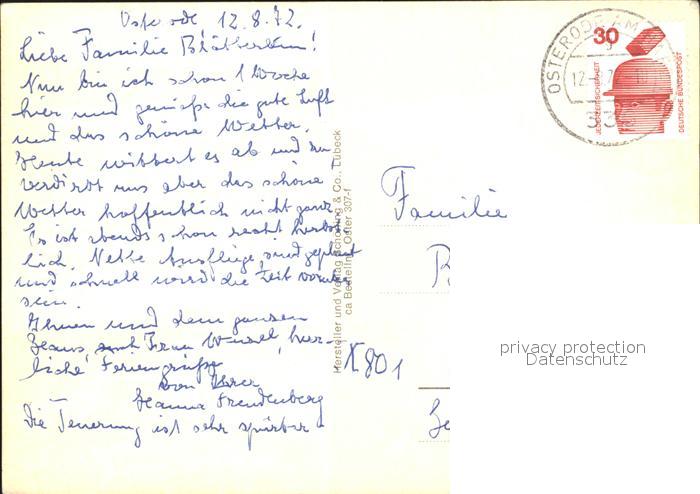 Osterode, 12.8.72.
Liebe Familie
Nun bin ich schon 1 Woche
hier und genieße die gute Luft
und das schöne Wetter.
Heute es ab und zu
verdirbt uns aber das schöne
Wetter hoffentlich nicht ganz.
Es ist abends schon recht herbst-
lich. Nette Ausflüge sind geplant
und schnell wird die Zeit vorüber
sein.
Ihnen und dem ganzen
Haus, Frau herz-
liche Feriengrüße
von Ihrer
Hanna Freudenberg
Die Teuerung ist sehr spürbar
Hersteller und Verlag Schöning & Co., Lübeck
Oster 307-f
OSTERODE AM
12.
30
JEDERZEIT SICHERHEIT
DEUTSCHE BUNDESPOST
Familie
X801
privacy protection
Datenschutz